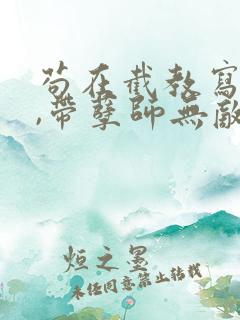 苟在截教寫
,帶孽師無敵
烜之墨
未任同意禁止转载